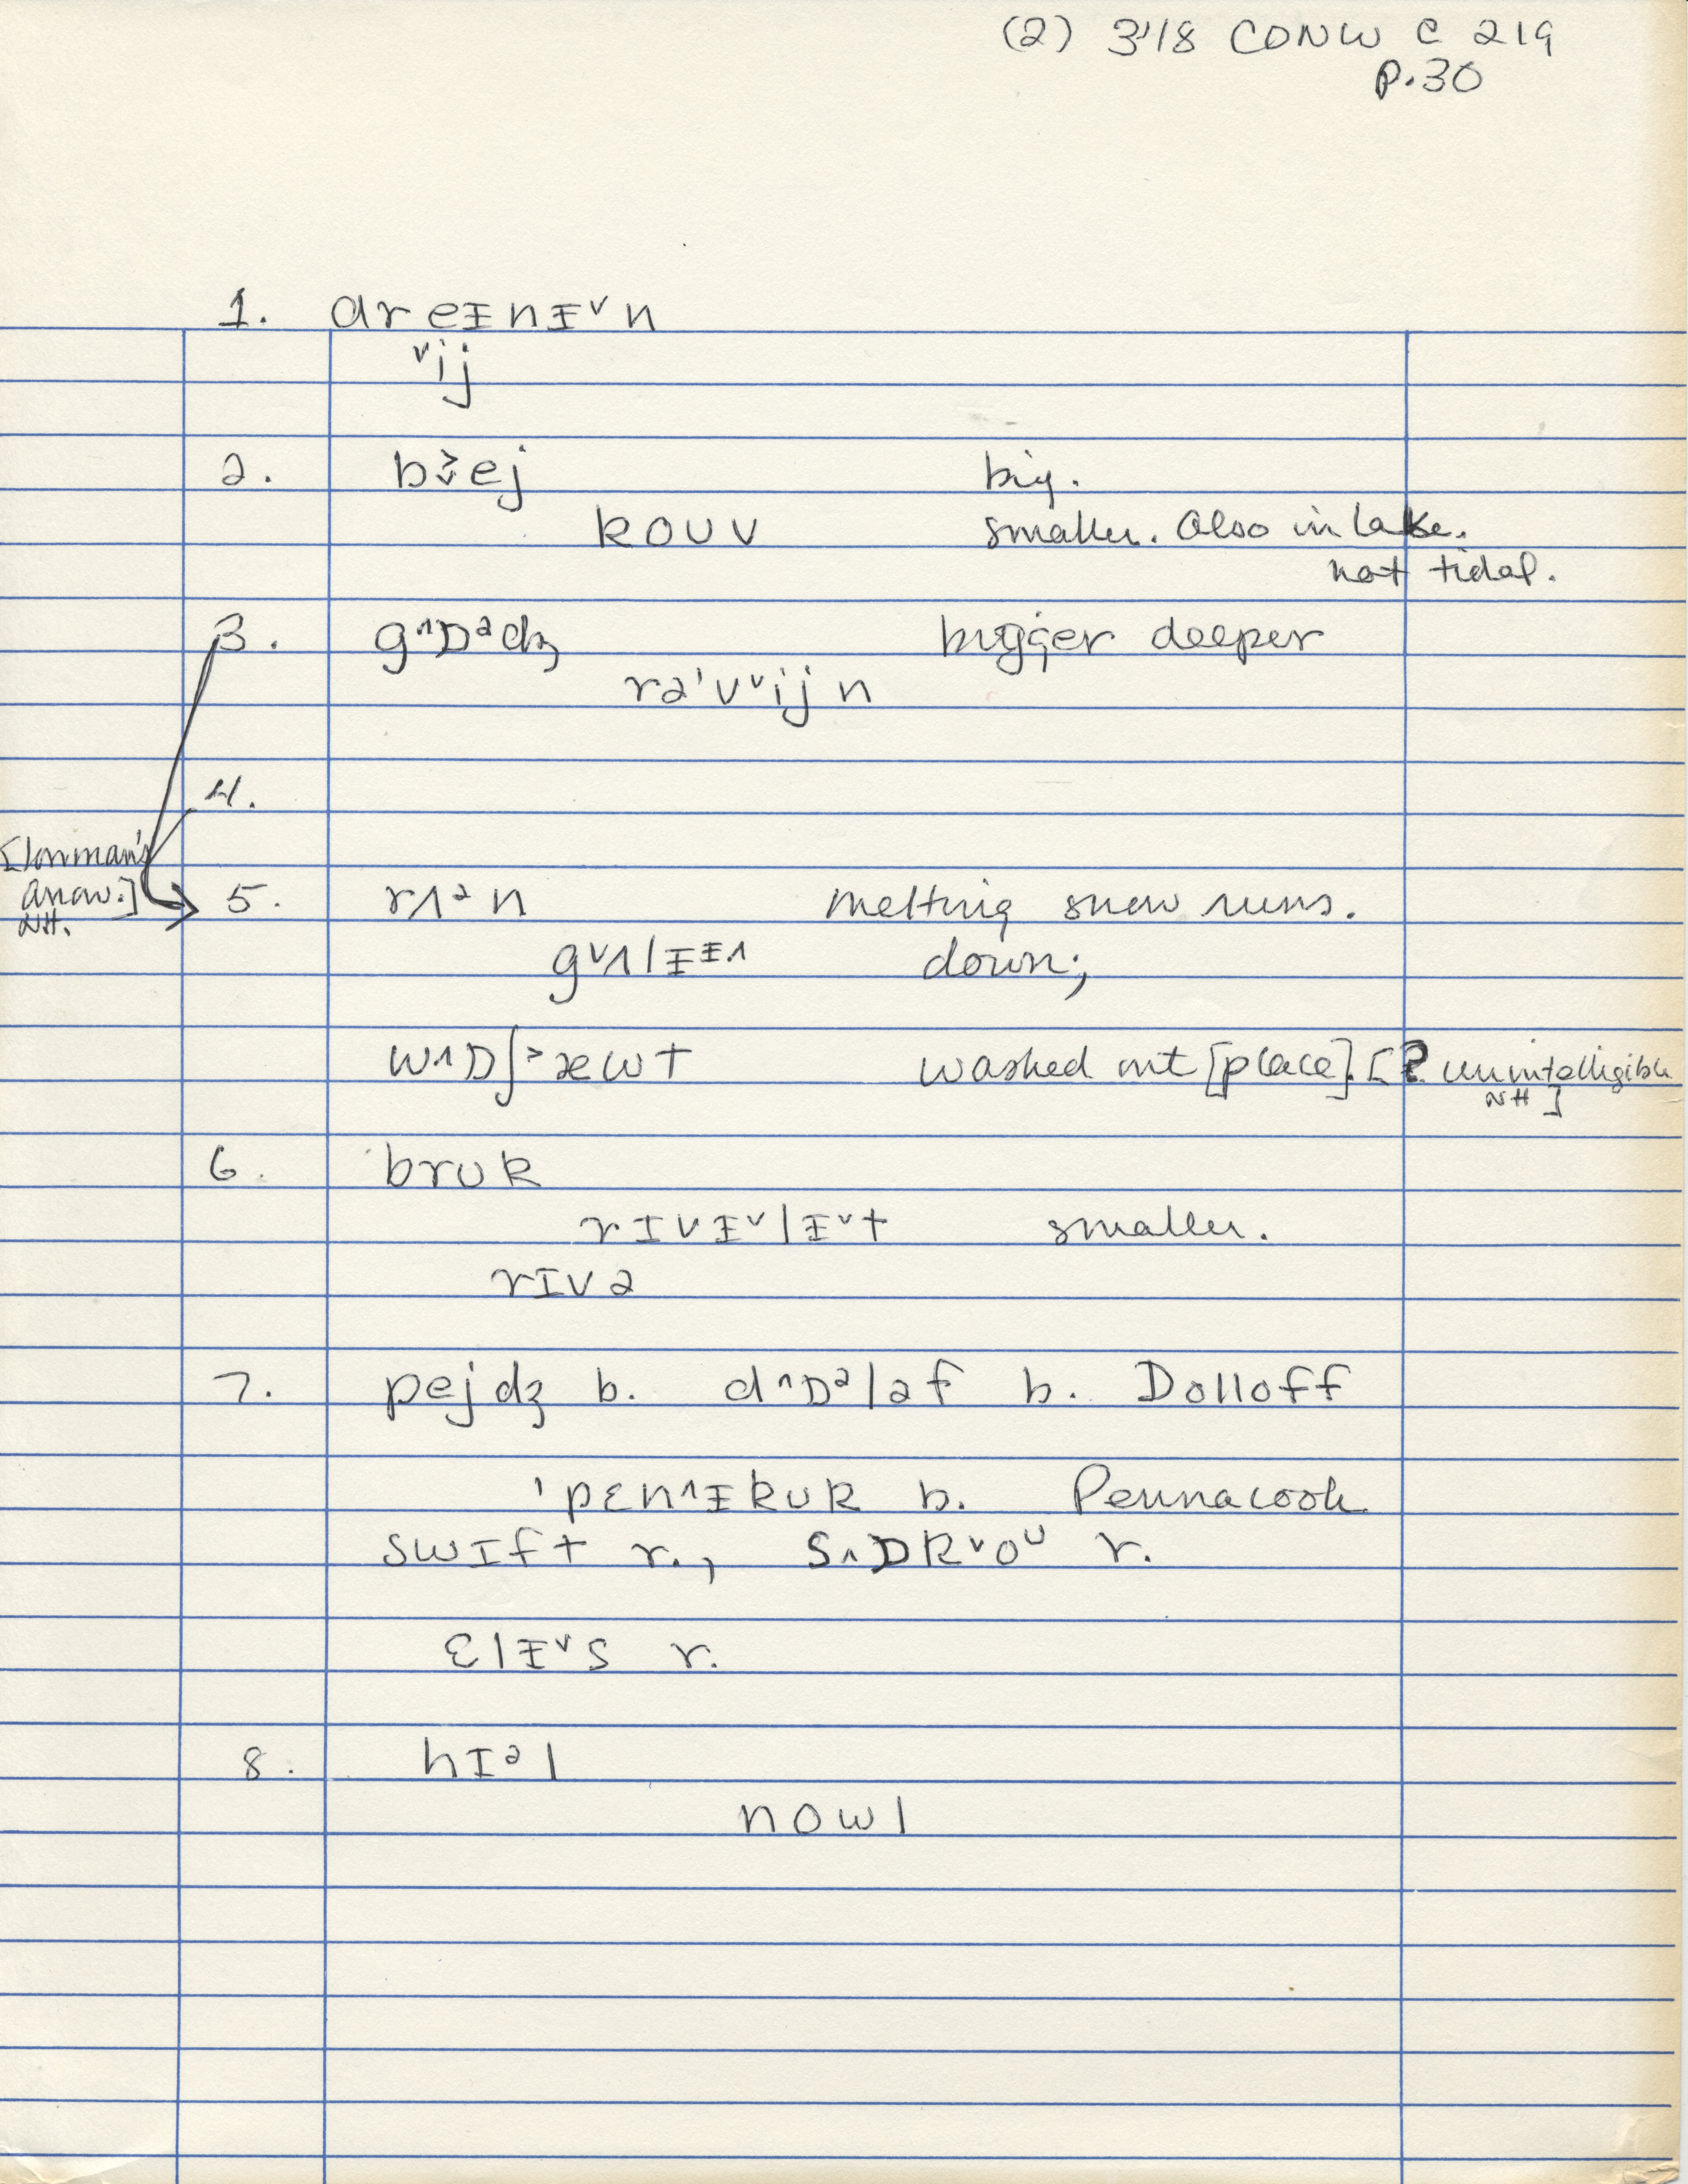 (2) 3'18 CONW C 219
p.30
1. dreᵻnᵻ˅n
˅ij
2. b˃˅ej big.
koʊv smaller. Also in lake.
not tidal.
3. g^ɒᵊdʒ bigger deeper
rə'v˅ijn
4.
[Lowman's
arrow.]
NH.
5. rʌᵊn melting snow runs.
g˅ʌlᵻᵻ.^ down;
w^ɒʃ˃æwt washed out [place]. [? unintelligible
NH]
6. brʊk
rɪvᵻ˅lᵻ˅t smaller.
rɪvə
7. pejdʒ b. d^ɒᵊləf b. Dolloff
'pɛn^ᵻkʊk b. Pennacook
swɪft r., s^ɒk˅oᶷ r.
ɛlᵻ˅s r.
8. hɪᵊl
nowl